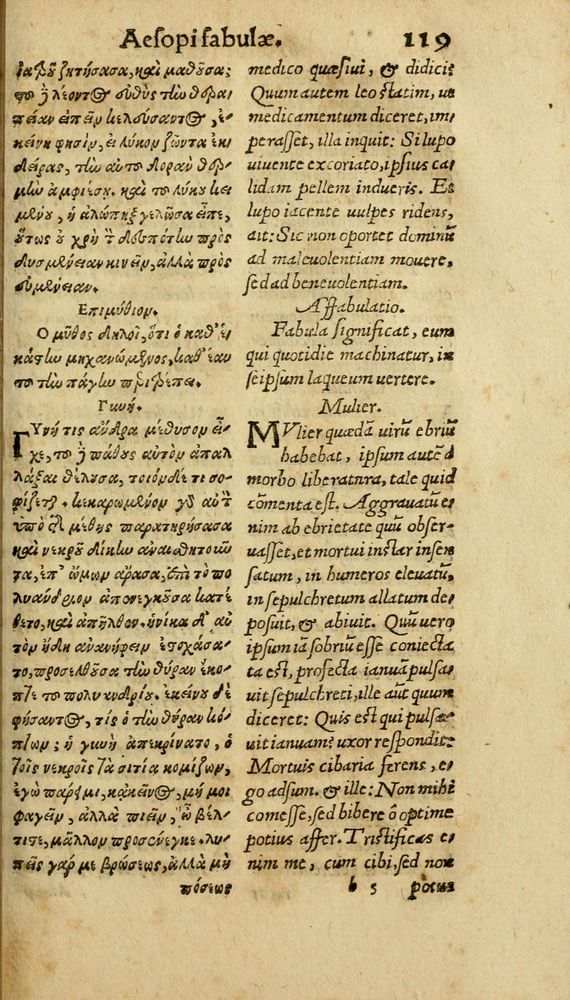 Aesopi fabulæ. 119
ἰαῤοῦ ζητήσασα, καὶ μαθοῦσα;
τοῦ δὲ λέοντος εὐθὺς τὴν θερα-
πείαν εἰπεῖν κελεύσαντος, ἐ-
κείνη φησὶν, εἰ λύκον ζῶντα ἐκ-
δείρας, τὴν αὐτοῦ δορὰν θερ-
μὴν ἀμφιέσῃ. καὶ τοῦ λύκου κει-
μένου, ἡ ἀλώπηξ γελῶσα εἶπε,
οὕτως οὐ χρὴ τὸν δεσπότην πρὸς
δυσμένειαν κινεῖν, ἀλλὰ πρὸς
εὐμένειαν.
Ἐπιμύθιον.
Ὁ μῦθος δηλοῖ, ὅτι ὁ καθ' ἑ-
κάστην μηχανώμενος, καθ' ἑαυ-
τοῦ τὴν πάγην περιτρέπει.
Γυνή.
ΓΥνή τις ἄνδρα μέθυσον εἶ-
χε, τοῦ δὲ πάθους αὐτὸν ἀπαλ
λάξαι θέλουσα, τοιόνδε τι σο-
φίζεται. κεκαρωμένον γὰρ αὐτὸν
ὑπὸ τῆς μέθης παρατηρήσασα
καὶ νεκροῦ δίκην ἀναισθητοῦν
τα, ἐπ' ὤμων ἄρασα, ἐπὶ τὸ πο
λυάνδριον ἀπενεγκοῦσα κατέ
θετο, καὶ ἀπῆλθεν. ἡνίκα δ' αὐ
τὸν ἤδη ἀνανήφειν ἐτοχάσα-
το, προσελθοῦσα τὴν θύραν ἔκο-
πτε τοῦ πολυανδρίου. ἐκείνου δὲ
φήσαντος, τίς ὁ τὴν θύραν κό-
πτων; ἡ γυνὴ ἀπεκρίνατο, ὁ
τοῖς νεκροῖς τὰ σιτία κομίζων,
ἐγὼ πάρειμι, κἀκεῖνος, μή μοι
φαγεῖν, ἀλλὰ πιεῖν, ὦ βέλ-
τιστε, μᾶλλον προσένεγκε. λυ-
πεῖς γάρ με βρώσεως, ἀλλὰ μὴ
πόσεως
medico quæsiui, & didici?
Quum autem leo statim, ut
medicamentum diceret, im
perasset, illa inquit: Si lupo
uiuente excoriato, ipsius ca
lidam pellem indueris. Et
lupo iacente uulpes ridens,
ait: Sic non oportet dominū
ad maleuolentiam mouere,
sed ad beneuolentiam.
Affabulatio.
Fabula significat, eum
qui quotidie machinatur, in
seipsum laqueum uertere.
Mulier.
MVlier quædā uirū ebriū
habebat, ipsum autē ā
morbo liberatura, tale quid
cōmenta est. Aggrauatū e-
nim ab ebrietate quū obser-
uasset, et mortui instar insen
satum, in humeros eleuatū,
in sepulchretum allatum de-
posuit, & abiuit. Quū uero
ipsum iā sobriū esse coniecta
ta est, profecta ianuā pulsa-
uit sepulchreti, ille aūt quum
diceret: Quis est qui pulsa-
uit ianuam? uxor respondit:
Mortuis cibaria ferens, e-
go adsum. & ille: Non mihi
comesse, sed bibere ō optime
potius affer. Tristificas e-
nim me, cum cibi, sed non
b 5 potus